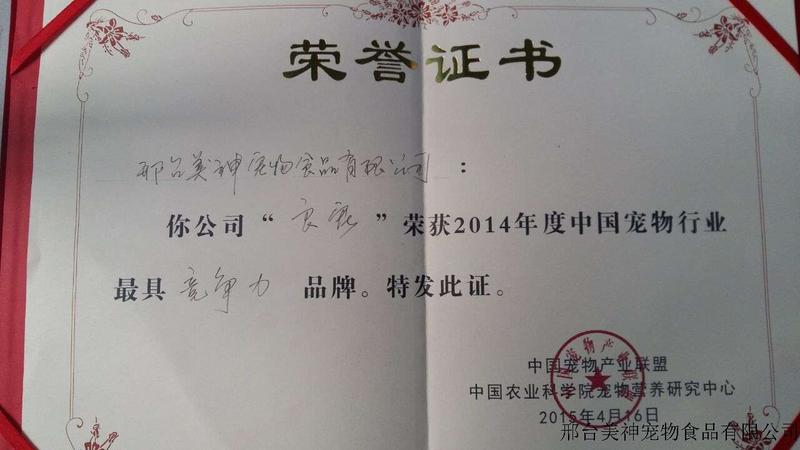 荣誉证书
邢台美神宠物食品有限公司：
你公司“良宠”荣获2014年度中国宠物行业
最具 竞争力 品牌。特发此证。
中国宠物产业联盟
中国农业科学院宠物营养研究中心
2015年4月16日
中国宠物产业联盟
邢台美神宠物食品有限公司